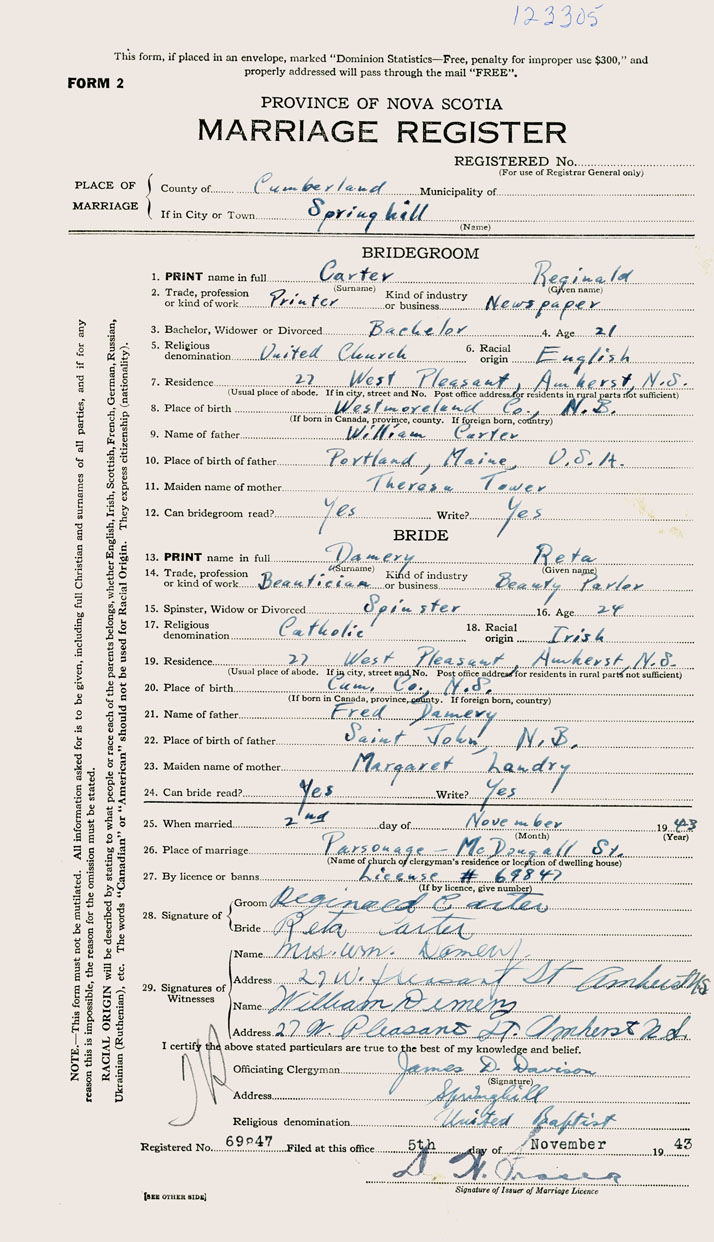 123305
This form, if placed in an envelope, marked "Dominion Statistics—Free, penalty for improper use $300," and
properly addressed will pass through the mail "FREE".
FORM 2
PROVINCE OF NOVA SCOTIA
MARRIAGE REGISTER
REGISTERED No.
(For use of Registrar General only)
PLACE OF MARRIAGE
County of Cumberland Municipality of
If in City or Town Springhill
(Name)
BRIDEGROOM
1. PRINT name in full Carter Reginald
(Surname) (Given name)
2. Trade, profession or kind of work Printer Kind of industry or business Newspaper
3. Bachelor, Widower or Divorced Bachelor 4. Age 21
5. Religious denomination United Church 6. Racial origin English
7. Residence 27 West Pleasant, Amherst, N.S.
(Usual place of abode. If in city, street and No. Post office address for residents in rural parts not sufficient)
8. Place of birth Westmoreland Co., N.B.
(If born in Canada, province, county. If foreign born, country)
9. Name of father William Carter
10. Place of birth of father Portland, Maine, U.S.A.
11. Maiden name of mother Theresa Tower
12. Can bridegroom read? Yes Write? Yes
BRIDE
13. PRINT name in full Damery Reta
(Surname) (Given name)
14. Trade, profession or kind of work Beautician Kind of industry or business Beauty Parlor
15. Spinster, Widow or Divorced Spinster 16. Age 24
17. Religious denomination Catholic 18. Racial origin Irish
19. Residence 27 West Pleasant, Amherst, N.S.
(Usual place of abode. If in city, street and No. Post office address for residents in rural parts not sufficient)
20. Place of birth Cum. Co., N.S.
(If born in Canada, province, county. If foreign born, country)
21. Name of father Fred Damery
22. Place of birth of father Saint John, N.B.
23. Maiden name of mother Margaret Landry
24. Can bride read? Yes Write? Yes
25. When married 2nd day of November 1943
(Month) (Year)
26. Place of marriage Parsonage - McDougall St.
(Name of church or clergyman's residence or location of dwelling house)
27. By licence or banns License # 69847
(If by licence, give number)
28. Signature of
Groom Reginald Carter
Bride Reta Carter
29. Signatures of Witnesses
Name Mrs. Wm. Damery
Address 27 W. Pleasant St Amherst NS
Name William Demery
Address 27 W. Pleasant St. Amherst N.S.
I certify the above stated particulars are true to the best of my knowledge and belief.
Officiating Clergyman James D. Davison
(Signature)
Address Springhill
Religious denomination United Baptist
Registered No. 69847 Filed at this office 5th day of November 19 43
Signature of Issuer of Marriage Licence
[SEE OTHER SIDE]
NOTE.—This form must not be mutilated. All information asked for is to be given, including full Christian and surnames of all parties, and if for any
reason this is impossible, the reason for the omission must be stated.
RACIAL ORIGIN will be described by stating to what people or race each of the parents belongs, whether English, Irish, Scottish, French, German, Russian,
Ukrainian (Ruthenian), etc. The words "Canadian" or "American" should not be used for Racial Origin. They express citizenship (nationality).